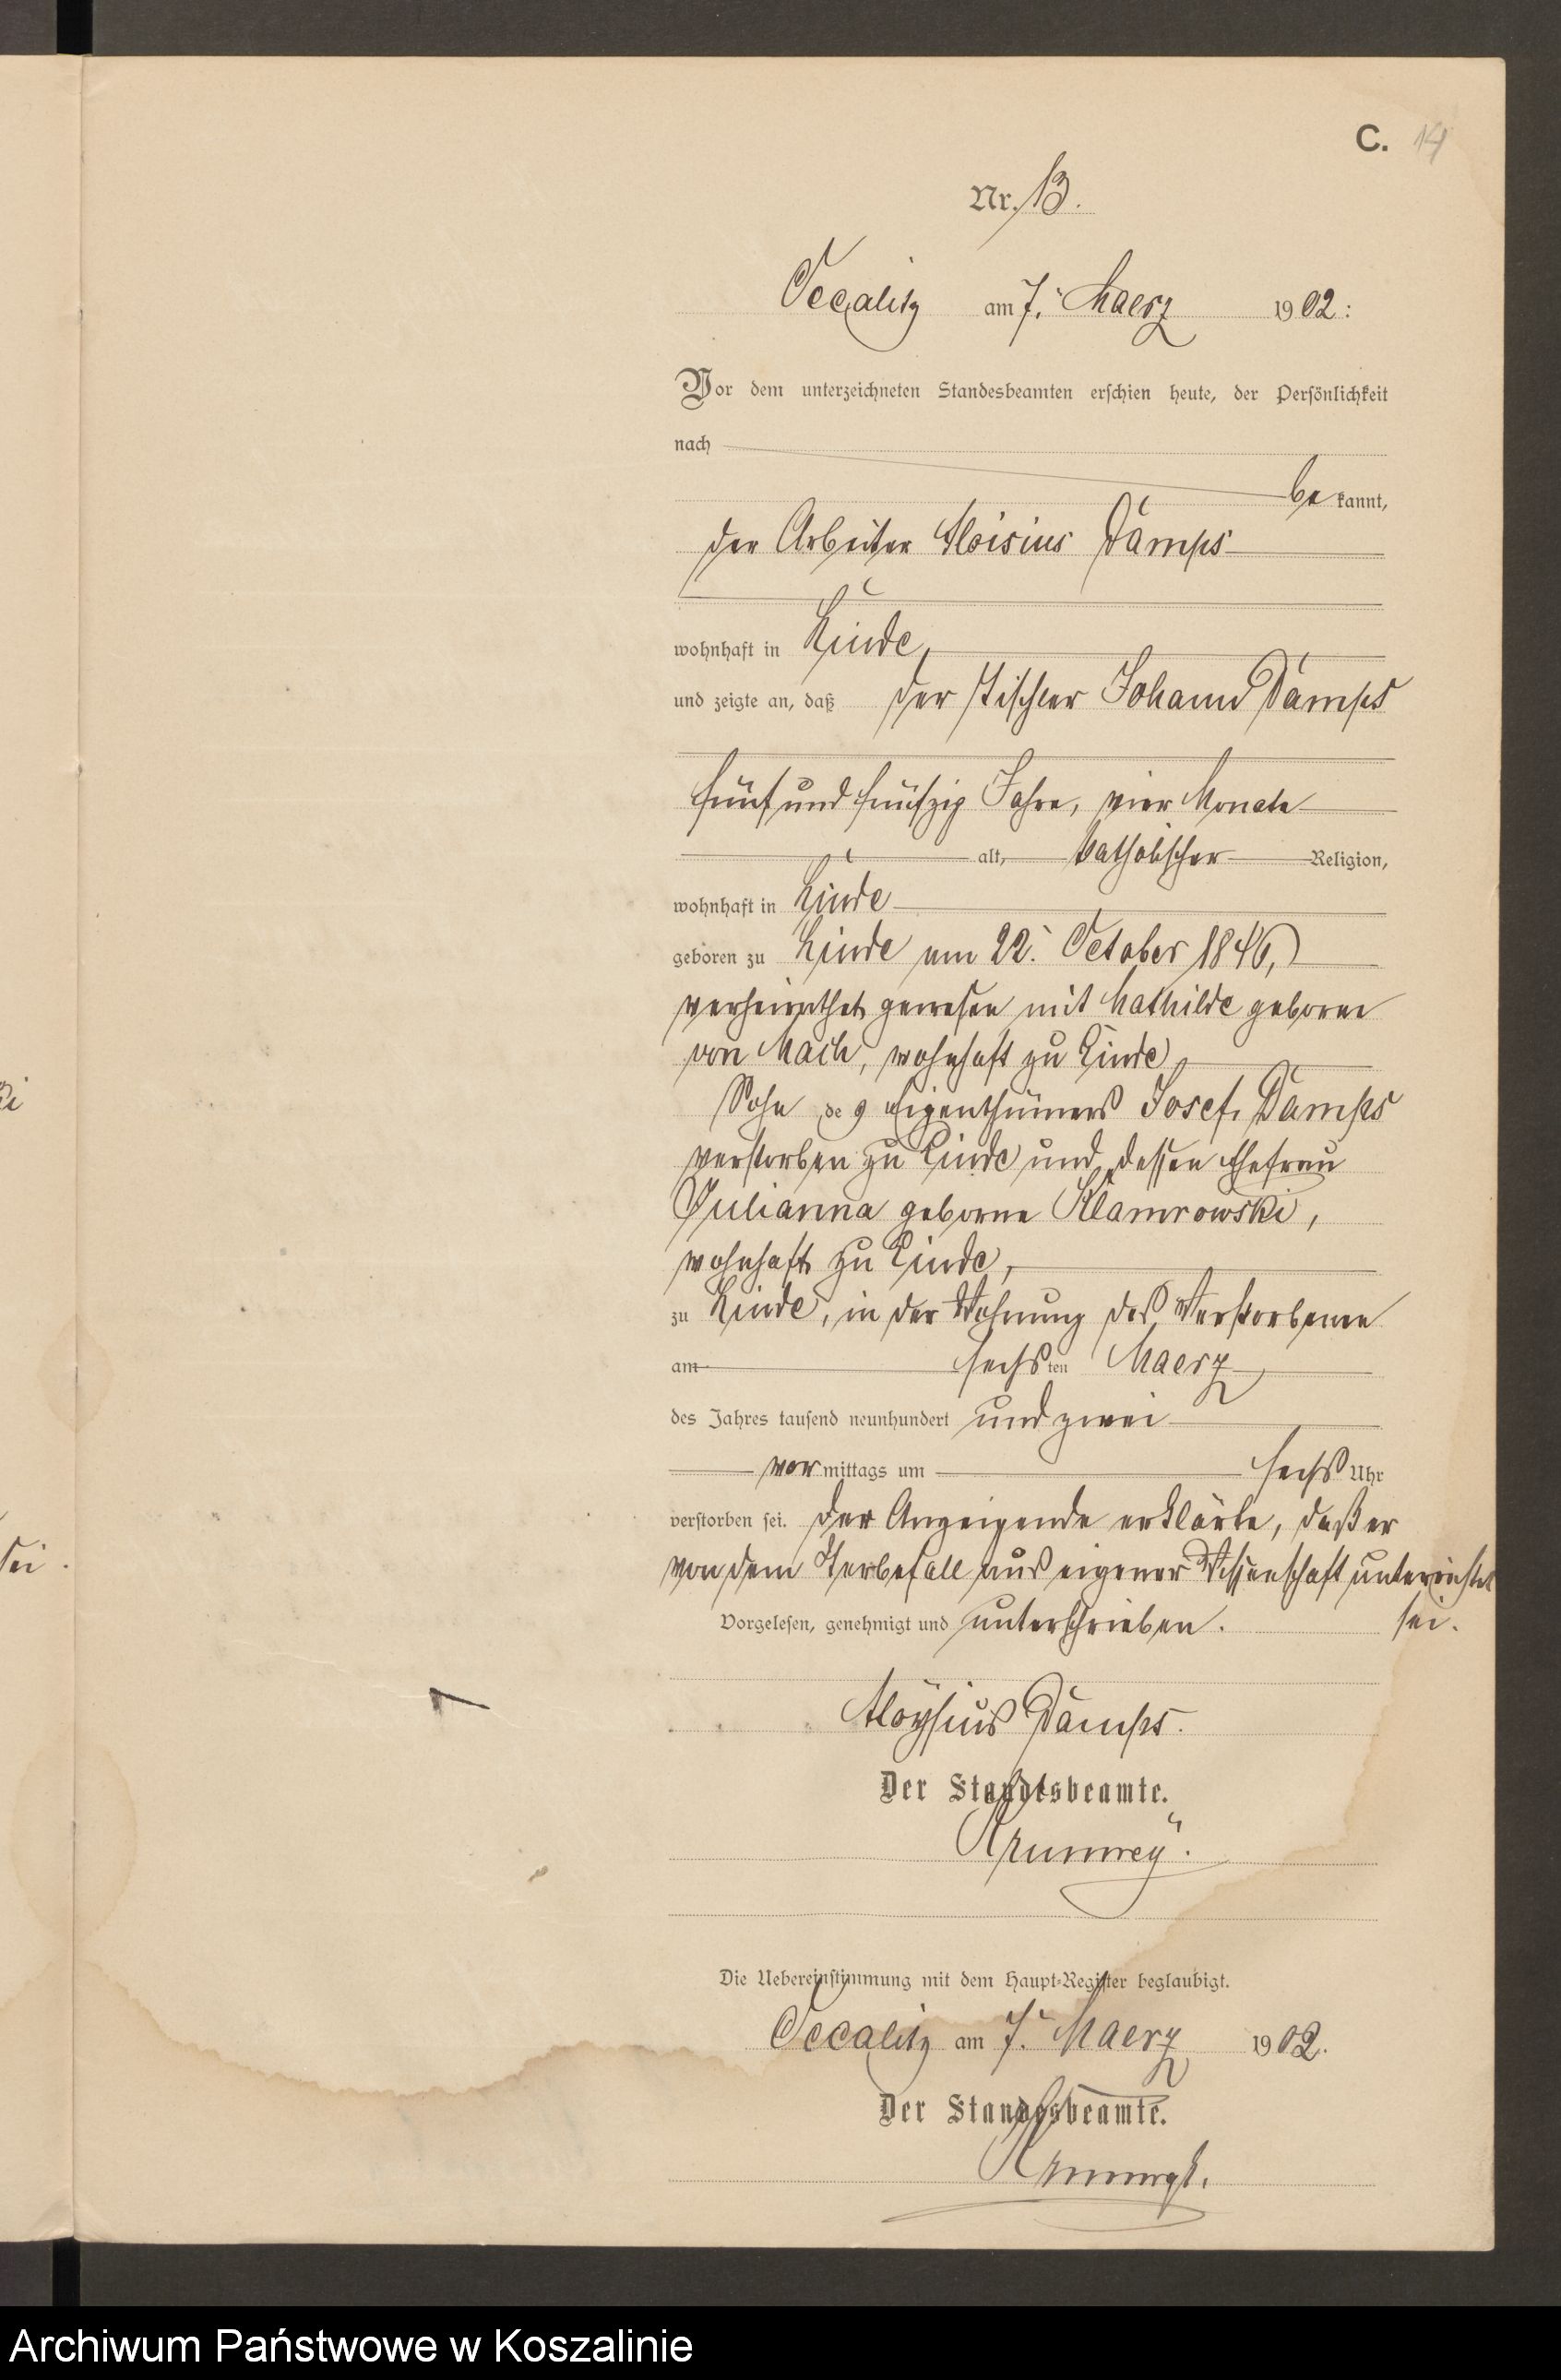 C. 14
Nr. 13.
Occalitz am 7. Maerz 1902:
Vor dem unterzeichneten Standesbeamten erschien heute, der Persönlichkeit
nach
be kannt,
der Arbeiter Aloisius Damps
wohnhaft in Linde,
und zeigte an, daß der Tischler Johann Damps
fünfundfünfzig Jahre, vier Monate
alt, katholischer Religion,
wohnhaft in Linde
geboren zu Linde am 22. October 1846,
verheirathet gewesen mit Mathilde geborne
von Mach, wohnhaft zu Linde
Sohn des Eigenthümers Josef Damps
verstorben zu Linde und dessen Ehefrau
Julianna geborne Klamrowski,
wohnhaft zu Linde,
zu Linde, in der Wohnung des Verstorbenen
am sechsten Maerz
des Jahres tausend neunhundert und zwei
vor mittags um sechs Uhr
verstorben sei. Der Anzeigende erklärte, daß er
von dem Sterbefall aus eigener Wissenschaft unterrichtet
sei.
Vorgelesen, genehmigt und unterschrieben.
Aloysius Damps.
Der Standesbeamte.
Die Uebereinstimmung mit dem Haupt-Register beglaubigt.
Occalitz am 7. Maerz 1902.
Der Standesbeamte.
Archiwum Państwowe w Koszalinie